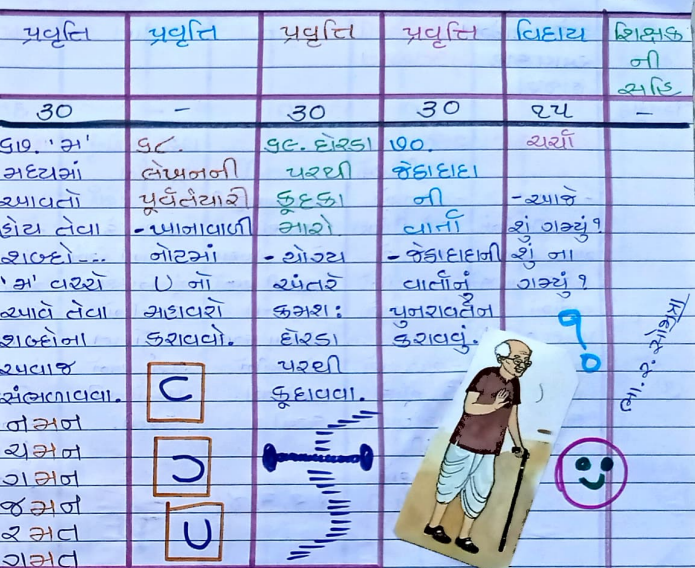 પ્રવૃત્તિ
પ્રવૃત્તિ
પ્રવૃત્તિ
પ્રવૃત્તિ
વિદાય
શિક્ષક
ની
સહિ
30
-
30
30
૨૫
-
૬૭. 'મ'
મધ્યમાં
આવતો
હોય તેવા
શબ્દો....
'મ' વચ્ચે
આવે તેવા
શબ્દોના
અવાજ
સંભળાવવા.
નમન
ચમન
ગમન
જમન
રમત
ગમત
૬૮.
લેખનની
પૂર્વતૈયારી
- ખાનાવાળી
નોટમાં
U નો
મહાવરો
કરાવવો.
C
Ɔ
U
૬૯. દોરડા
પરથી
કૂદકા
મારો
- યોગ્ય
અંતરે
ક્રમશઃ
દોરડા
પરથી
કૂદાવવા.
૭૦.
જેકાદાદા
ની
વાર્તા
- જેકાદાદાની
વાર્તાનું
પુનરાવર્તન
કરાવવું.
ચર્ચા
- આજે
શું ગમ્યું?
શું ના
ગમ્યું?
?